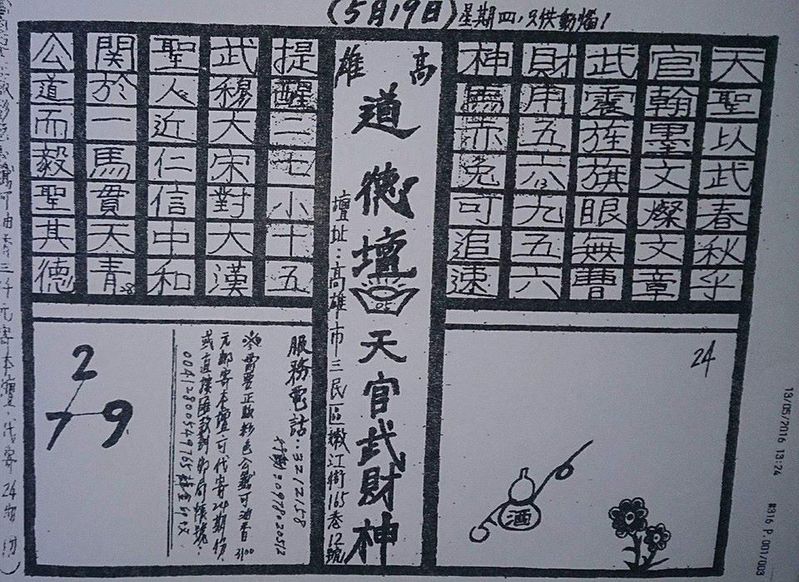 (5月19日)星期四,只供動腦!
天聖以武春秋乎
官翰墨文燦文章
武震旌旗眼無曹
財用五六九五六
13
神馬赤兔可追速
高雄
道德壇
天官武財神
壇址:高雄市三民區嫩江街165巷12號
提醒二七小十五
武穆大宋對大漢
聖人近仁信中和
關於一馬貫天青
28
公道而毅聖其德
24
酒
服務電話:3212158
正版彩色公籤可油香3100
元郵寄本壇,可代寄24期份,
或直接匯款郵局帳號:
2
7 9
可油香三仟元寄本壇,代寄24期份)
13/05/2016 13:24
#316 P.001/003